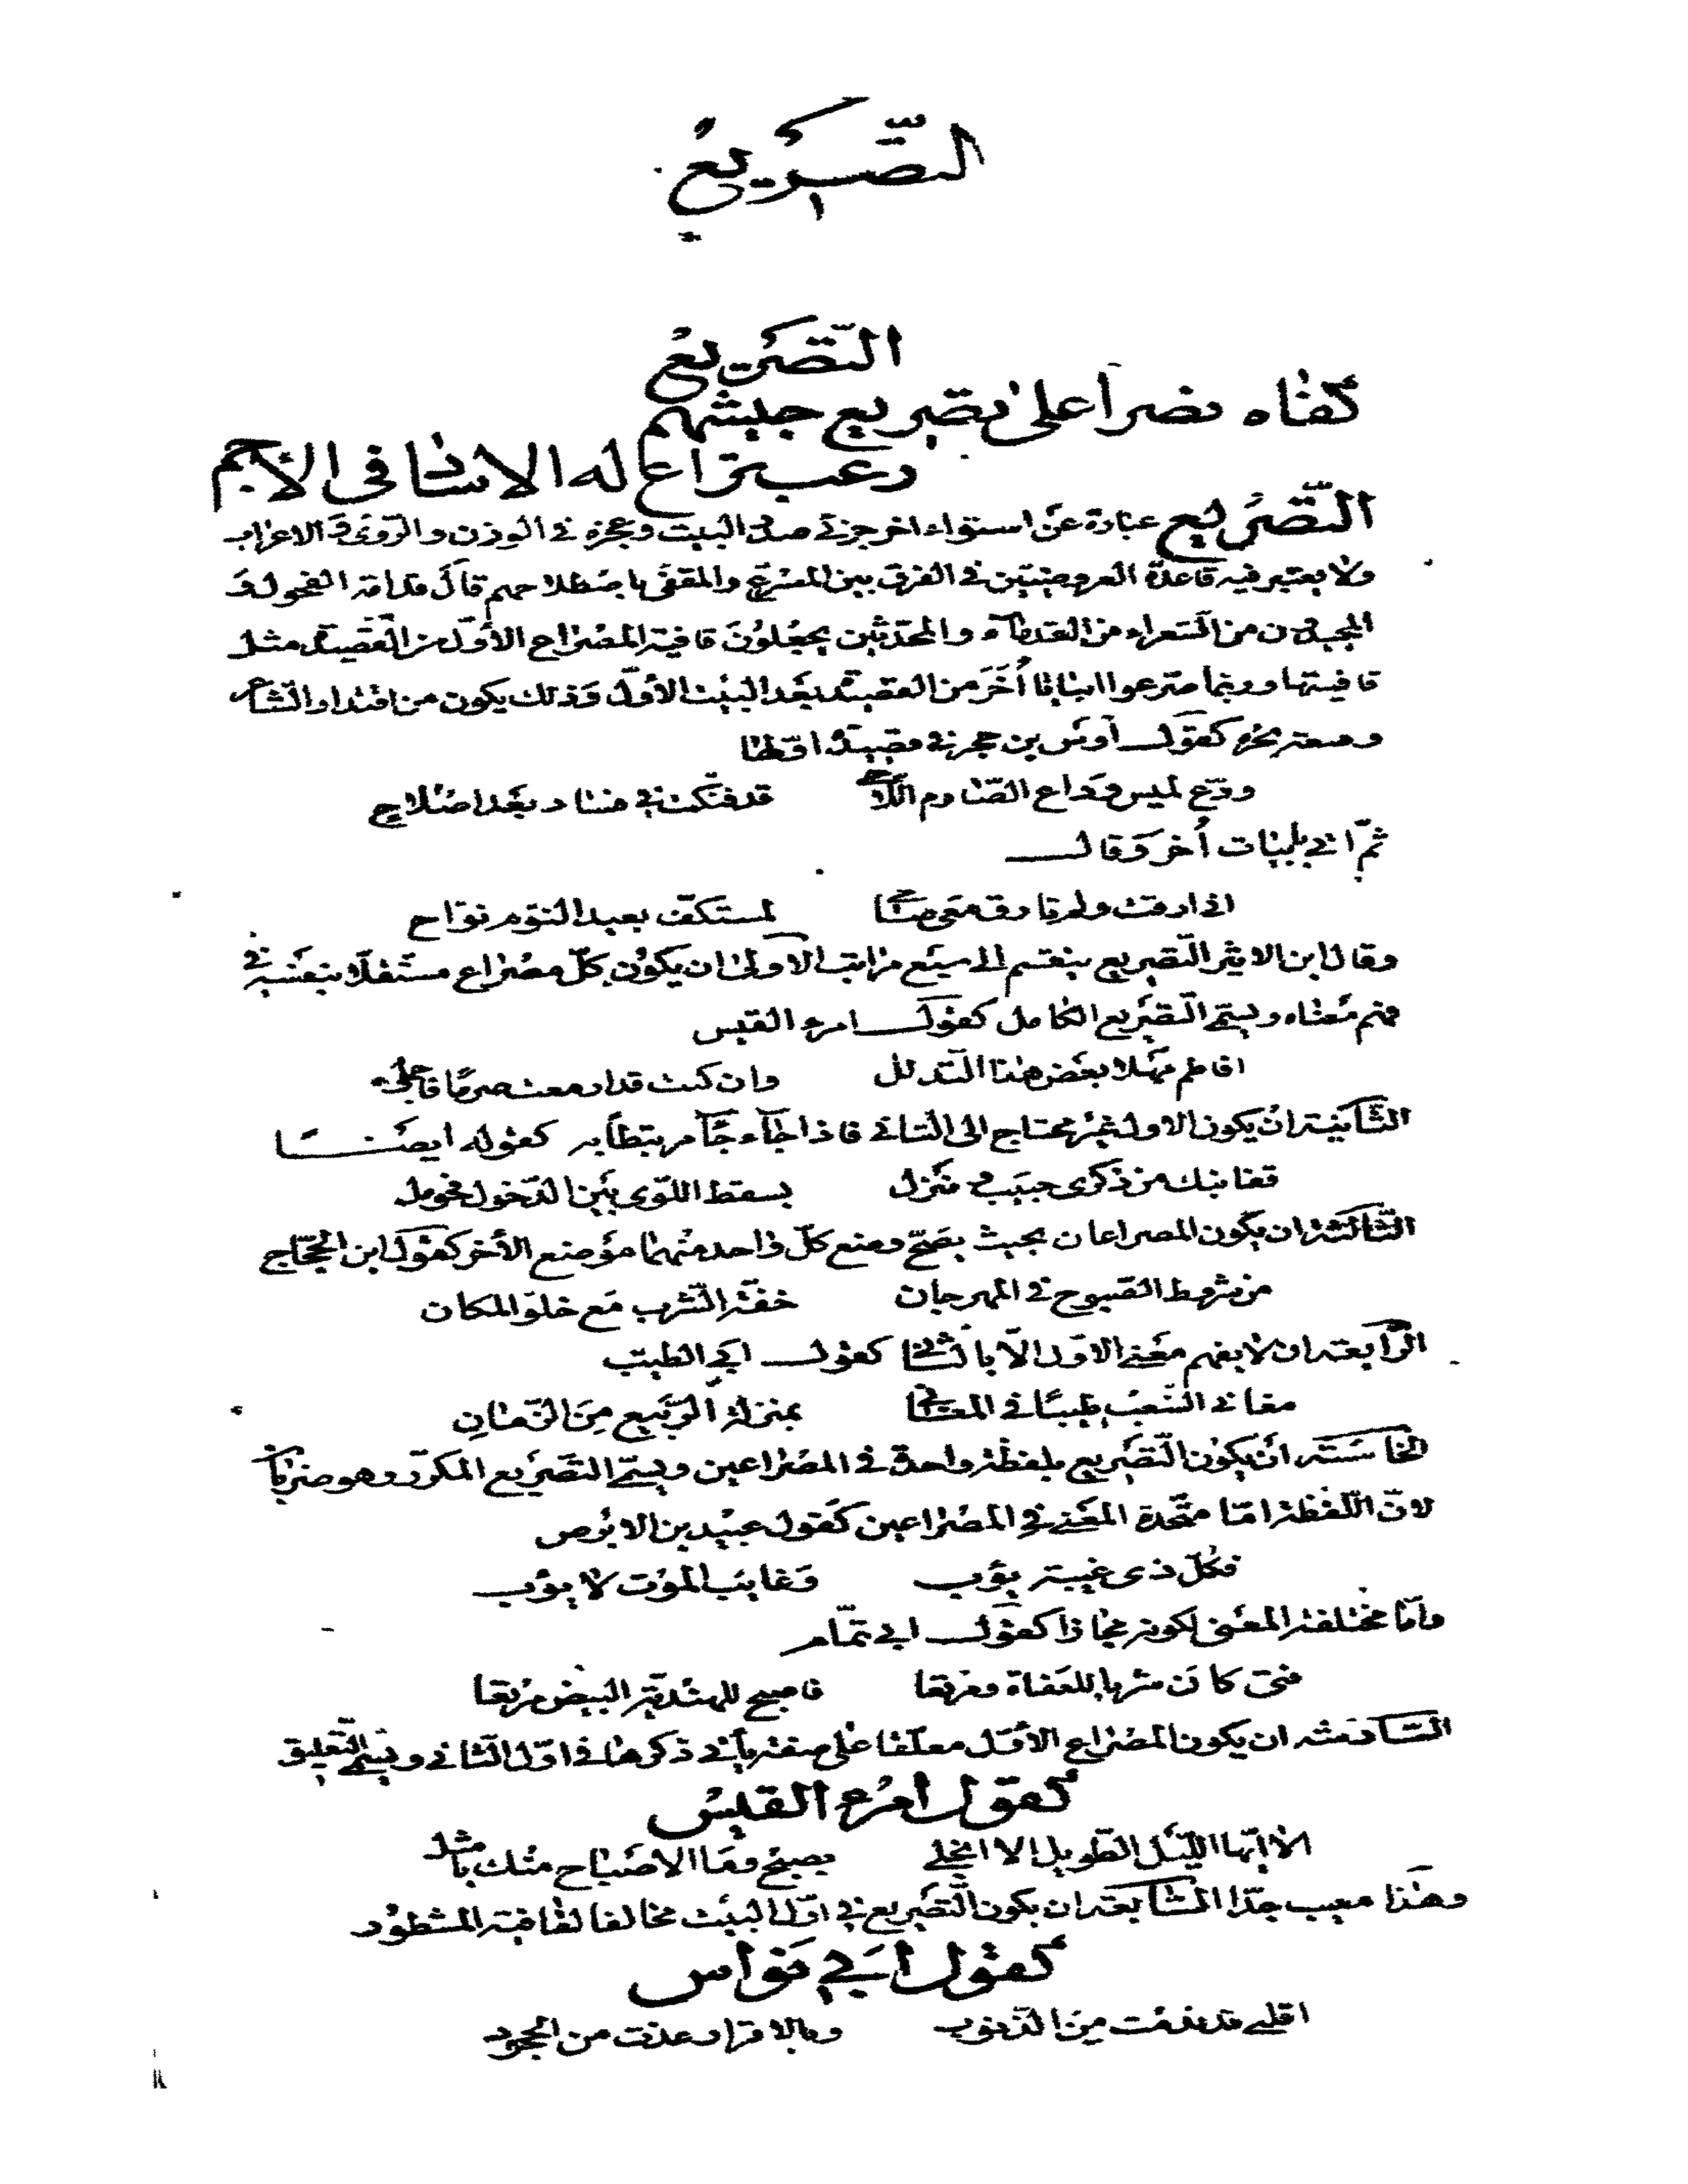 التّصريع
التّصريع
كفاه نصرا على تصريع جيشهم
رعب تراع له الاساد فى الاجم
التّصريع عبارة عن استواء اخر جزء فى صدر البيت وعجزه فى الوزن والروىّ والاعراب
ولا يعتبر فيه قاعدة العروضيين فى الفرق بين المصرّع والمقفّى باصطلاحهم قال قدامة الفحول و
المجيدون من الشعراء من القدماء والمحدثين يجعلون قافية المصراع الأوّل من القصيدة مثل
قافيتها وربما صرعوا ابياتا أخر من القصيدة بعد البيت الأوّل وذلك يكون من اقتدار الشاعر
وسعة بحره كقول أوس بن حجر فى قصيدة اوّلها
ودّع لميس وداع الصّارم اللّاحى قد فنّكت فى فساد بعد اصلاح
ثمّ اتى بابيات أخر وقال
انى ارقت ولم تارق معى صاحى لمستكفّ بعيد النوم نوّاح
وقال ابن الاثير التّصريع ينقسم الى سبع مراتب الاولى ان يكون كلّ مصراع مستقلّا بنفسه فى
فهم معناه ويسمّى التّصريع الكامل كقول امرء القيس
افاطم مهلا بعض هذا التّدلل وان كنت قد ازمعت صرمًا فاجملى
الثّانية ان يكون الاول غير محتاج الى الثانى فاذا جآء جآء مرتبطاً به كقوله ايضًا
قفا نبك من ذكرى حبيب ومنزل بسقط اللّوى بين الدّخول فحومل
الثّالثة ان يكون المصراعان بحيث يصحّ وضع كلّ واحد منهما موضع الأخر كقول ابن الحجّاج
من شروط الصّبوح فى المهرجان خفّة الشّرب مع خلوّ المكان
الرّابعة ان لا يفهم معنى الاوّل الّا بالثّانى كقول ابى الطيب
مغانى الشّعب طيبًا فى المغانى بمنزلة الرّبيع من الزّمان
الخامسة ان يكون التّصريع بلفظة واحدة فى المصراعين ويسمّى التّصريع المكرّر وهو ضربان
لانّ اللّفظة امّا متّحدة المعنى فى المصراعين كقول عبيد بن الابرص
فكلّ ذى غيبة يؤب وغايب الموت لا يؤب
وامّا مختلفة المعنى لكونه مجازا كقول ابى تمّام
فتى كان شربا للعفاة ومرتعا فاصبح للهنديّة البيض مرتعا
السّادسة ان يكون المصراع الأوّل معلّقا على صفة يأتى ذكرها فى اوّل الثّانى ويسمّى التّعليق
كقول امرء القيس
الا ايّها اللّيل الطّويل الا انجلى بصبح وما الاصباح منك بامثل
وهذا معيب جدّا السّابعة ان يكون التّصريع فى اوّل البيت مخالفا لقافية المشطور
كقول ابى نواس
اقلنى قد ندمت من الذّنوب وبالاقرار عذت من الجحود